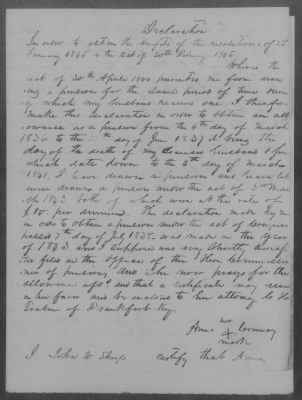 Declaration
In order to obtain the benefits of the resolutions of 25
January 1845 & the act of 20th February 1845.
Where the
act of 30th April 1844 prevents me from draw
ing a pension for the same period of time
which my husband receive one I therefore
make this declaration in order to obtain an all
owance as a pension from the 4th day of March
1836 to the 11th day of Jan 1837 it being the
day of the death of my husband from
which date down to the 4th day of March
1841. I have drawn a pension and have like
wise drawn a pension under the act of 3rd Mar
ch 1843 both of which were at the rate of
$80. per annum. The declaration made by me
in order to obtain a pension under the act of Congress
passed 7th day of July 1838. was made in the year
of 1843 and I suppose was very shortly thereaf
ter filed in the office of the Hon Commissio
ner of pensions and she now prays for the
allowance afsd and that a certificate may issue
in her favor and be enclosed to her attorney
of Frankfort Ky.
Anna her Conway
X
mark
I John W certify that Anna